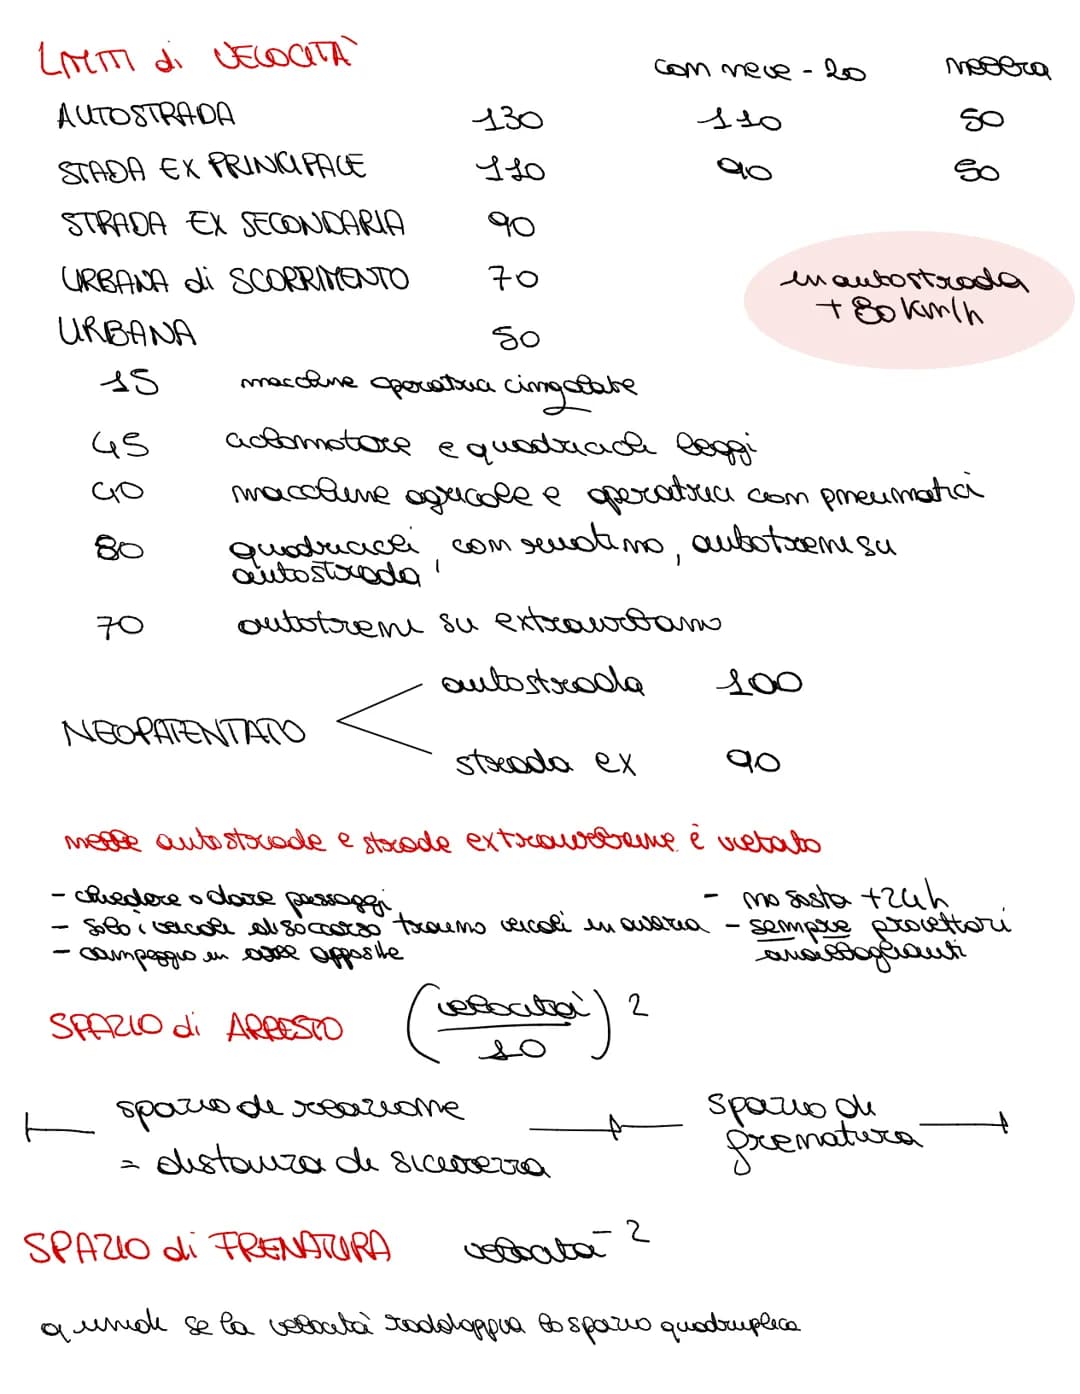 LIMITI di VELOCITÀ
con neve - 20 nebbia
AUTOSTRADA 130 110 50
STADA EX PRINCIPALE 110 90 50
STRADA EX SECONDARIA 90
URBANA di SCORRIMENTO 70
in autostrada
+ 80 km/h
URBANA 50
15 macchine operatrici cingolate
45 ciclomotore e quadricicli leggi
40 macchine agricole e operatrici con pneumatici
80 quadricicli, con semotino, autotreni su
autostrada
70 autotreni su extraurbano
autostrada 100
NEOPATENTATO
strada ex 90
nelle autostrade e strade extraurbane è vietato
- chiedere o dare passaggi - no sosta +24h
- solo i veicoli di soccorso traino veicoli in avaria - sempre proiettori
- campeggio in aree apposite anabbaglianti
SPAZIO di ARRESTO (velocità / 10) 2
spazio di reazione spazio di
= distanza di sicurezza frenatura
SPAZIO di FRENATURA velocità 2
quindi se la velocità raddoppia lo spazio quadruplica